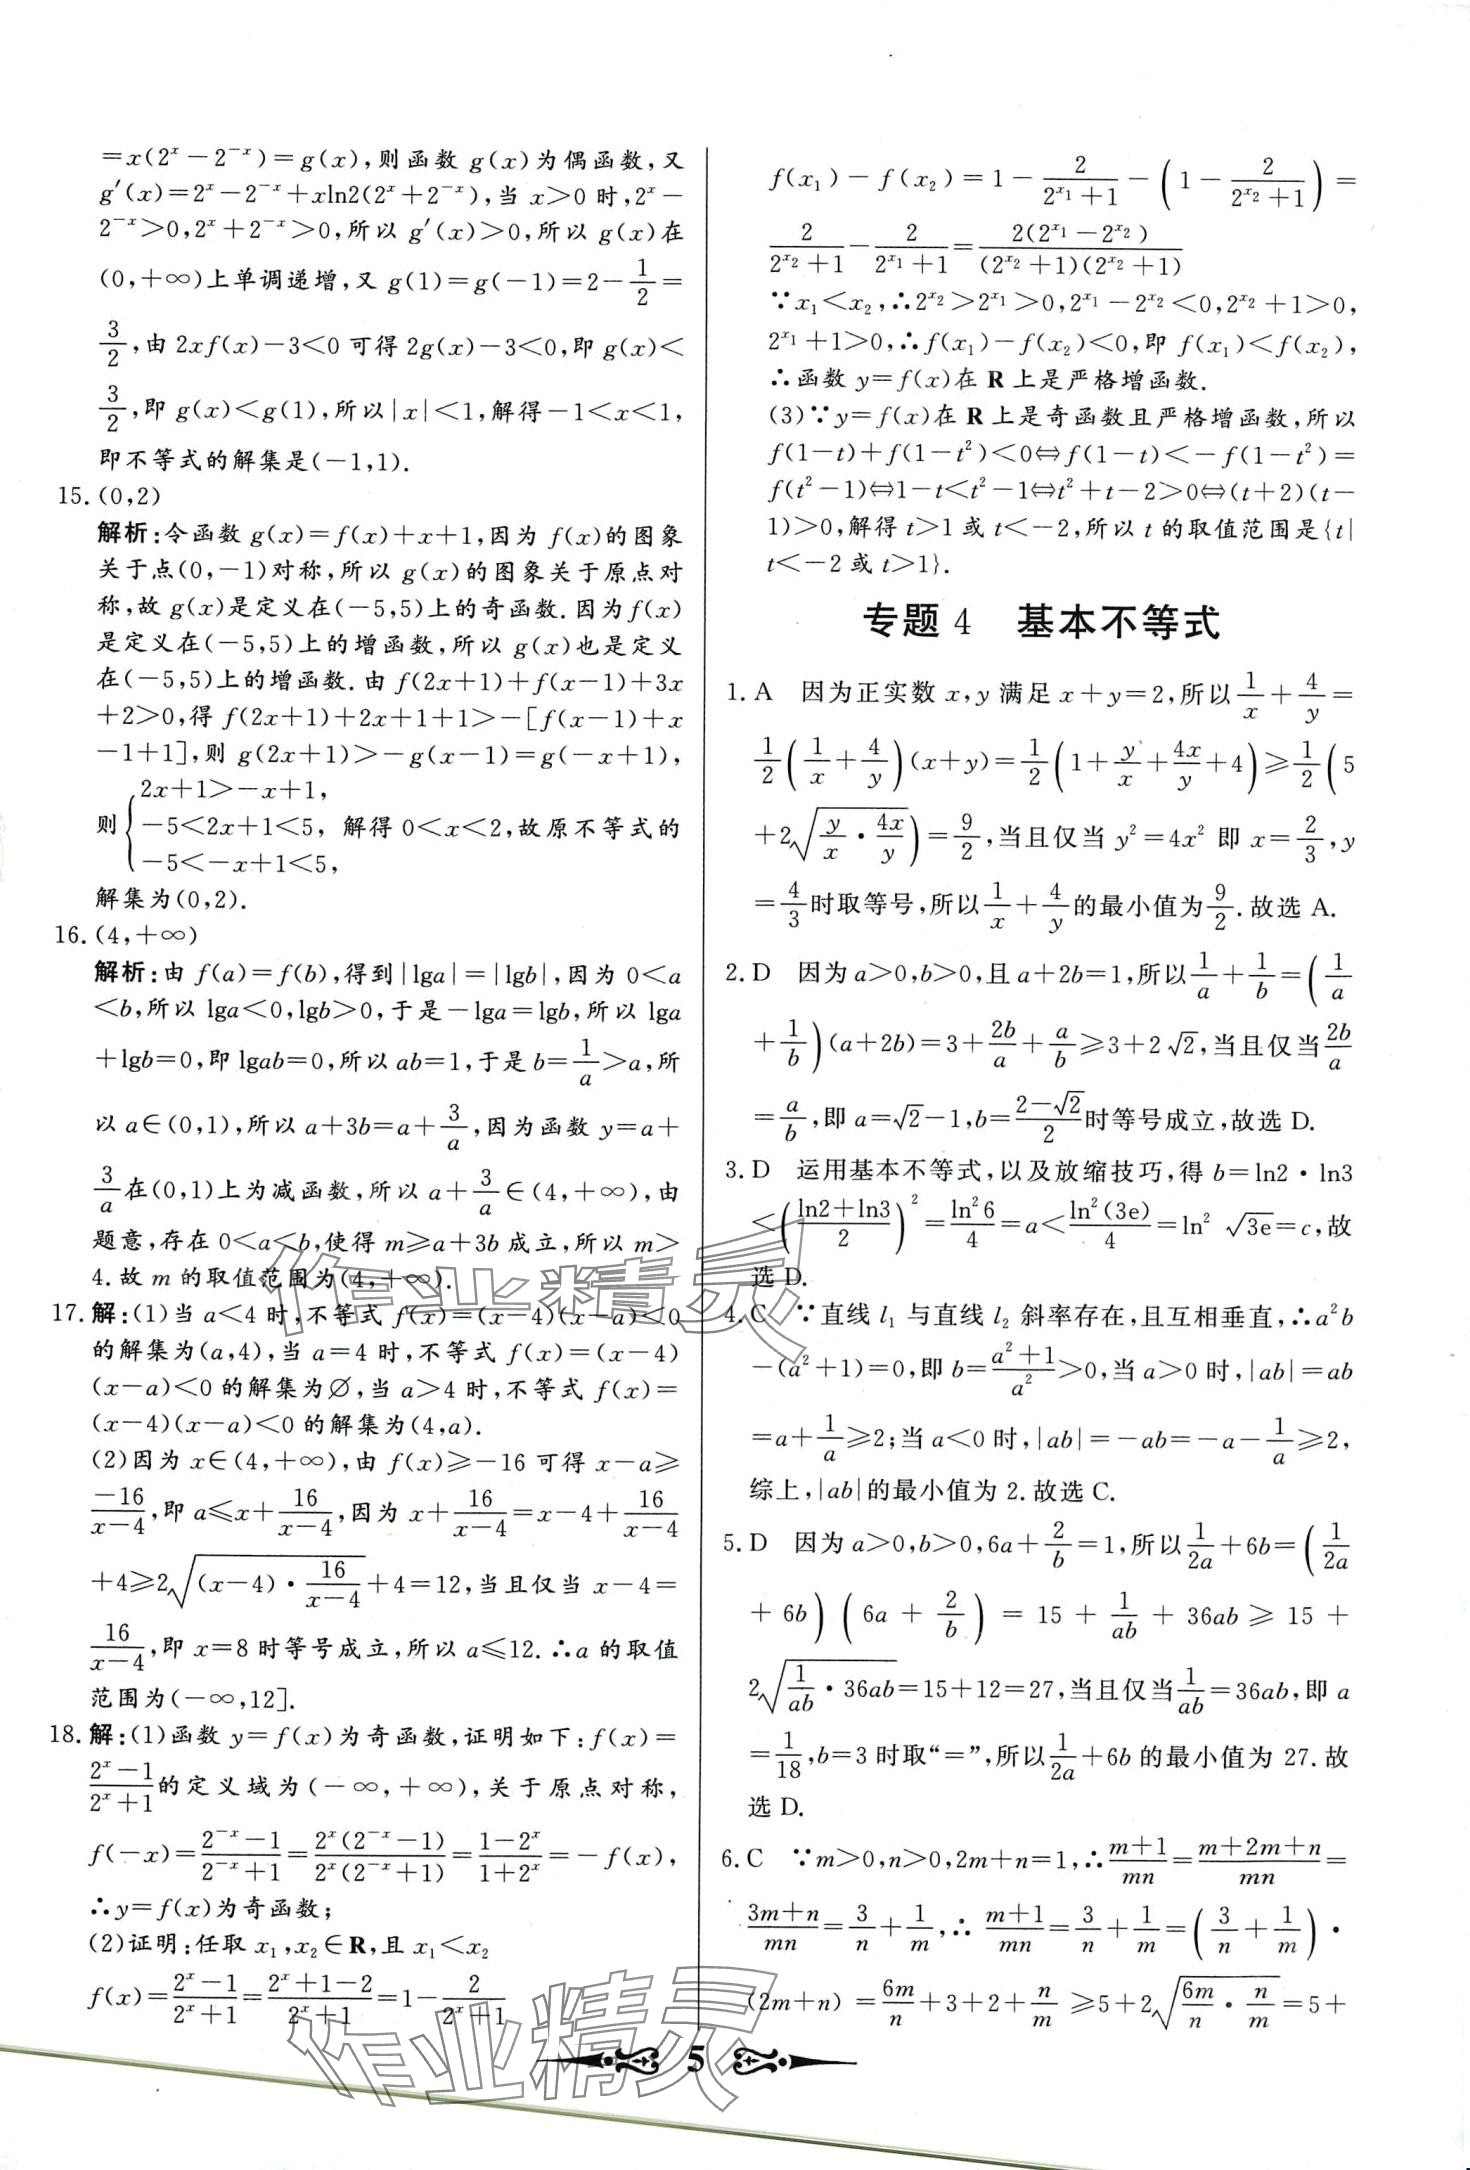 =x(2^x-2^{-x})=g(x),则函数 g(x)为偶函数,又
g′(x)=2^x-2^{-x}+xln2(2^x+2^{-x}),当 x>0 时,2^x-
2^{-x}>0,2^x+2^{-x}>0,所以 g′(x)>0,所以 g(x)在
(0,+∞)上单调递增,又 g(1)=g(-1)=2-1/2=
3/2,由 2xf(x)-3<0 可得 2g(x)-3<0,即 g(x)<
3/2,即 g(x)<g(1),所以|x|<1,解得-1<x<1,
即不等式的解集是(-1,1).
15.(0,2)
解析:令函数 g(x)=f(x)+x+1,因为 f(x)的图象
关于点(0,-1)对称,所以 g(x)的图象关于原点对
称,故 g(x)是定义在(-5,5)上的奇函数.因为f(x)
是定义在(-5,5)上的增函数,所以 g(x)也是定义
在(-5,5)上的增函数.由 f(2x+1)+f(x-1)+3x
+2>0,得 f(2x+1)+2x+1+1>-[f(x-1)+x
-1+1],则 g(2x+1)>-g(x-1)=g(-x+1),
2x+1>-x+1,
则{-5<2x+1<5, 解得 0<x<2,故原不等式的
-5<-x+1<5,
解集为(0,2).
16.(4,+∞)
解析:由 f(a)=f(b),得到|lga|=|lgb|,因为 0<a
<b,所以 lga<0,lgb>0,于是-lga=lgb,所以 lga
+lgb=0,即 lgab=0,所以 ab=1,于是 b=1/a>a,所
以 a∈(0,1),所以 a+3b=a+3/a,因为函数 y=a+
3/a在(0,1)上为减函数,所以 a+3/a∈(4,+∞),由
题意,存在 0<a<b,使得 m≥a+3b 成立,所以 m>
4.故 m 的取值范围为(4,+∞).
17.解:(1)当 a<4 时,不等式 f(x)=(x-4)(x-a)<0
的解集为(a,4),当 a=4 时,不等式 f(x)=(x-4)
(x-a)<0 的解集为∅,当 a>4 时,不等式 f(x)=
(x-4)(x-a)<0 的解集为(4,a).
(2)因为 x∈(4,+∞),由 f(x)≥-16 可得 x-a≥
-16/(x-4),即 a≤x+16/(x-4),因为 x+16/(x-4)=x-4+16/(x-4)
+4≥2√((x-4)·16/(x-4))+4=12,当且仅当 x-4=
16/(x-4),即 x=8 时等号成立,所以 a≤12.∴a 的取值
范围为(-∞,12].
18.解:(1)函数 y=f(x)为奇函数,证明如下:f(x)=
(2^x-1)/(2^x+1)的定义域为(-∞,+∞),关于原点对称,
f(-x)=(2^{-x}-1)/(2^{-x}+1)=2^x(2^{-x}-1)/2^x(2^{-x}+1)=(1-2^x)/(1+2^x)=-f(x),
∴y=f(x)为奇函数;
(2)证明:任取 x₁,x₂∈R,且 x₁<x₂
f(x)=(2^x-1)/(2^x+1)=(2^x+1-2)/(2^x+1)=1-2/(2^x+1)
f(x₁)-f(x₂)=1-2/(2^{x₁}+1)-(1-2/(2^{x₂}+1))=
2/(2^{x₂}+1)-2/(2^{x₁}+1)=2(2^{x₁}-2^{x₂})/(2^{x₂}+1)(2^{x₂}+1)
∵x₁<x₂,∴2^{x₂}>2^{x₁}>0,2^{x₁}-2^{x₂}<0,2^{x₂}+1>0,
2^{x₁}+1>0,∴f(x₁)-f(x₂)<0,即 f(x₁)<f(x₂),
∴函数 y=f(x)在 R 上是严格增函数.
(3)∵y=f(x)在 R 上是奇函数且严格增函数,所以
f(1-t)+f(1-t²)<0⇔f(1-t)<-f(1-t²)=
f(t²-1)⇔1-t<t²-1⇔t²+t-2>0⇔(t+2)(t-
1)>0,解得 t>1 或 t<-2,所以 t 的取值范围是{t|
t<-2 或 t>1}.
专题 4 基本不等式
1.A 因为正实数 x,y 满足 x+y=2,所以1/x+4/y=
1/2(1/x+4/y)(x+y)=1/2(1+y/x+4x/y+4)≥1/2(5
+2√(y/x·4x/y))=9/2,当且仅当 y²=4x² 即 x=2/3,y
=4/3时取等号,所以1/x+4/y的最小值为9/2.故选 A.
2.D 因为 a>0,b>0,且 a+2b=1,所以1/a+1/b=(1/a
+1/b)(a+2b)=3+2b/a+a/b≥3+2√2,当且仅当2b/a
=a/b,即 a=√2-1,b=(2-√2)/2时等号成立,故选 D.
3.D 运用基本不等式,以及放缩技巧,得 b=ln2·ln3
<((ln2+ln3)/2)²=ln²6/4=a<ln²(3e)/4=ln²√3e=c,故
选 D.
4.C ∵直线 l₁ 与直线 l₂ 斜率存在,且互相垂直,∴a²b
-(a²+1)=0,即 b=(a²+1)/a²>0,当 a>0 时,|ab|=ab
=a+1/a≥2;当 a<0 时,|ab|=-ab=-a-1/a≥2,
综上,|ab|的最小值为 2.故选 C.
5.D 因为 a>0,b>0,6a+2/b=1,所以1/2a+6b=(1/2a
+6b)(6a+2/b)=15+1/ab+36ab≥15+
2√(1/ab·36ab)=15+12=27,当且仅当1/ab=36ab,即 a
=1/18,b=3 时取“=”,所以1/2a+6b 的最小值为 27.故
选 D.
6.C ∵m>0,n>0,2m+n=1,∴(m+1)/mn=(m+2m+n)/mn=
(3m+n)/mn=3/n+1/m,∴(m+1)/mn=3/n+1/m=(3/n+1/m)·
(2m+n)=6m/n+3+2+n/m≥5+2√(6m/n·n/m)=5+
5
作业精灵
作业精灵